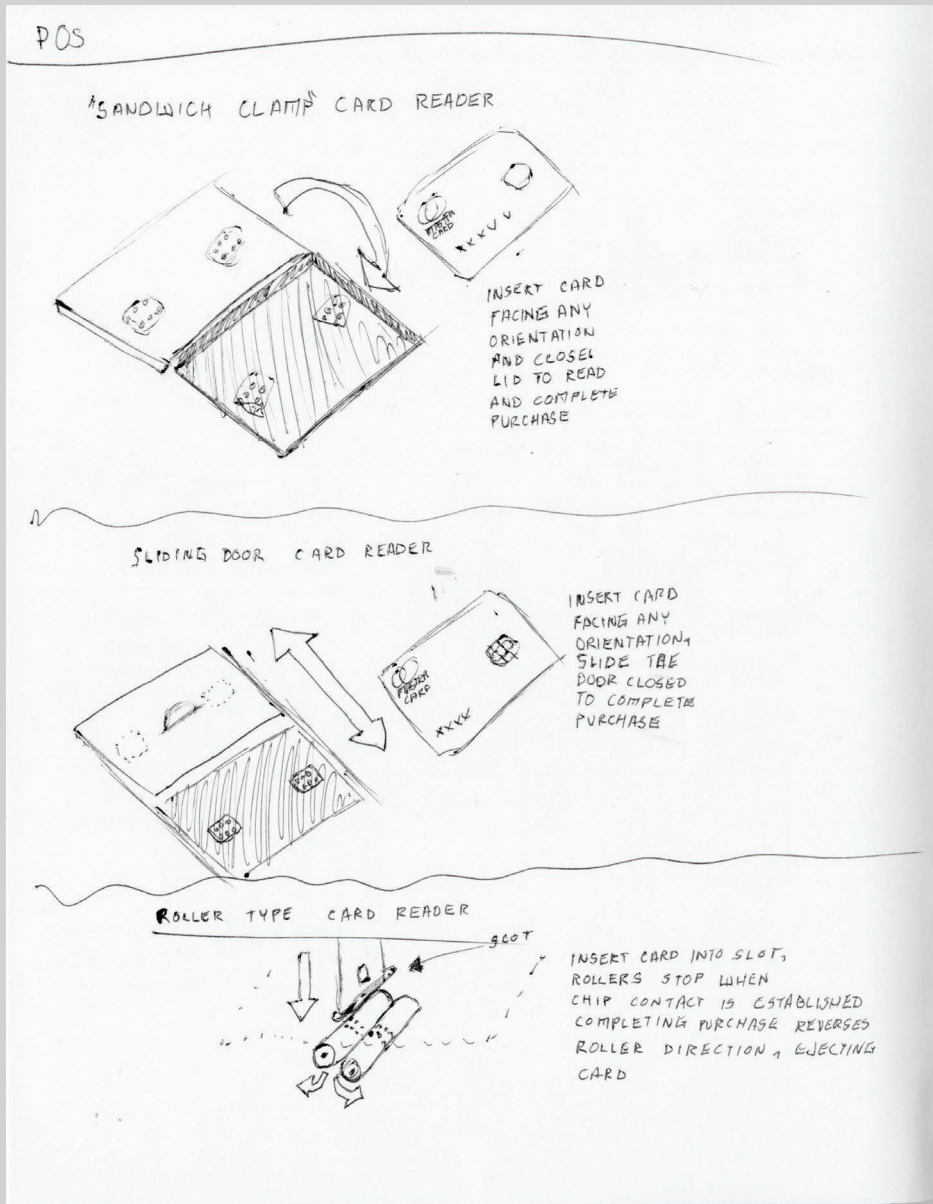 POS
"SANDWICH CLAMP" CARD READER
MASTER
CARD
XXXX
INSERT CARD
FACING ANY
ORIENTATION
AND CLOSE
LID TO READ
AND COMPLETE
PURCHASE
SLIDING DOOR CARD READER
MASTER
CARD
XXXX
INSERT CARD
FACING ANY
ORIENTATION,
SLIDE THE
DOOR CLOSED
TO COMPLETE
PURCHASE
ROLLER TYPE CARD READER
SLOT
INSERT CARD INTO SLOT,
ROLLERS STOP WHEN
CHIP CONTACT IS ESTABLISHED
COMPLETING PURCHASE REVERSES
ROLLER DIRECTION, EJECTING
CARD